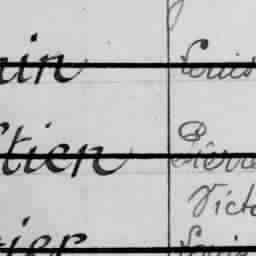 in Louis
tien Pierre
Victo
ier Louis